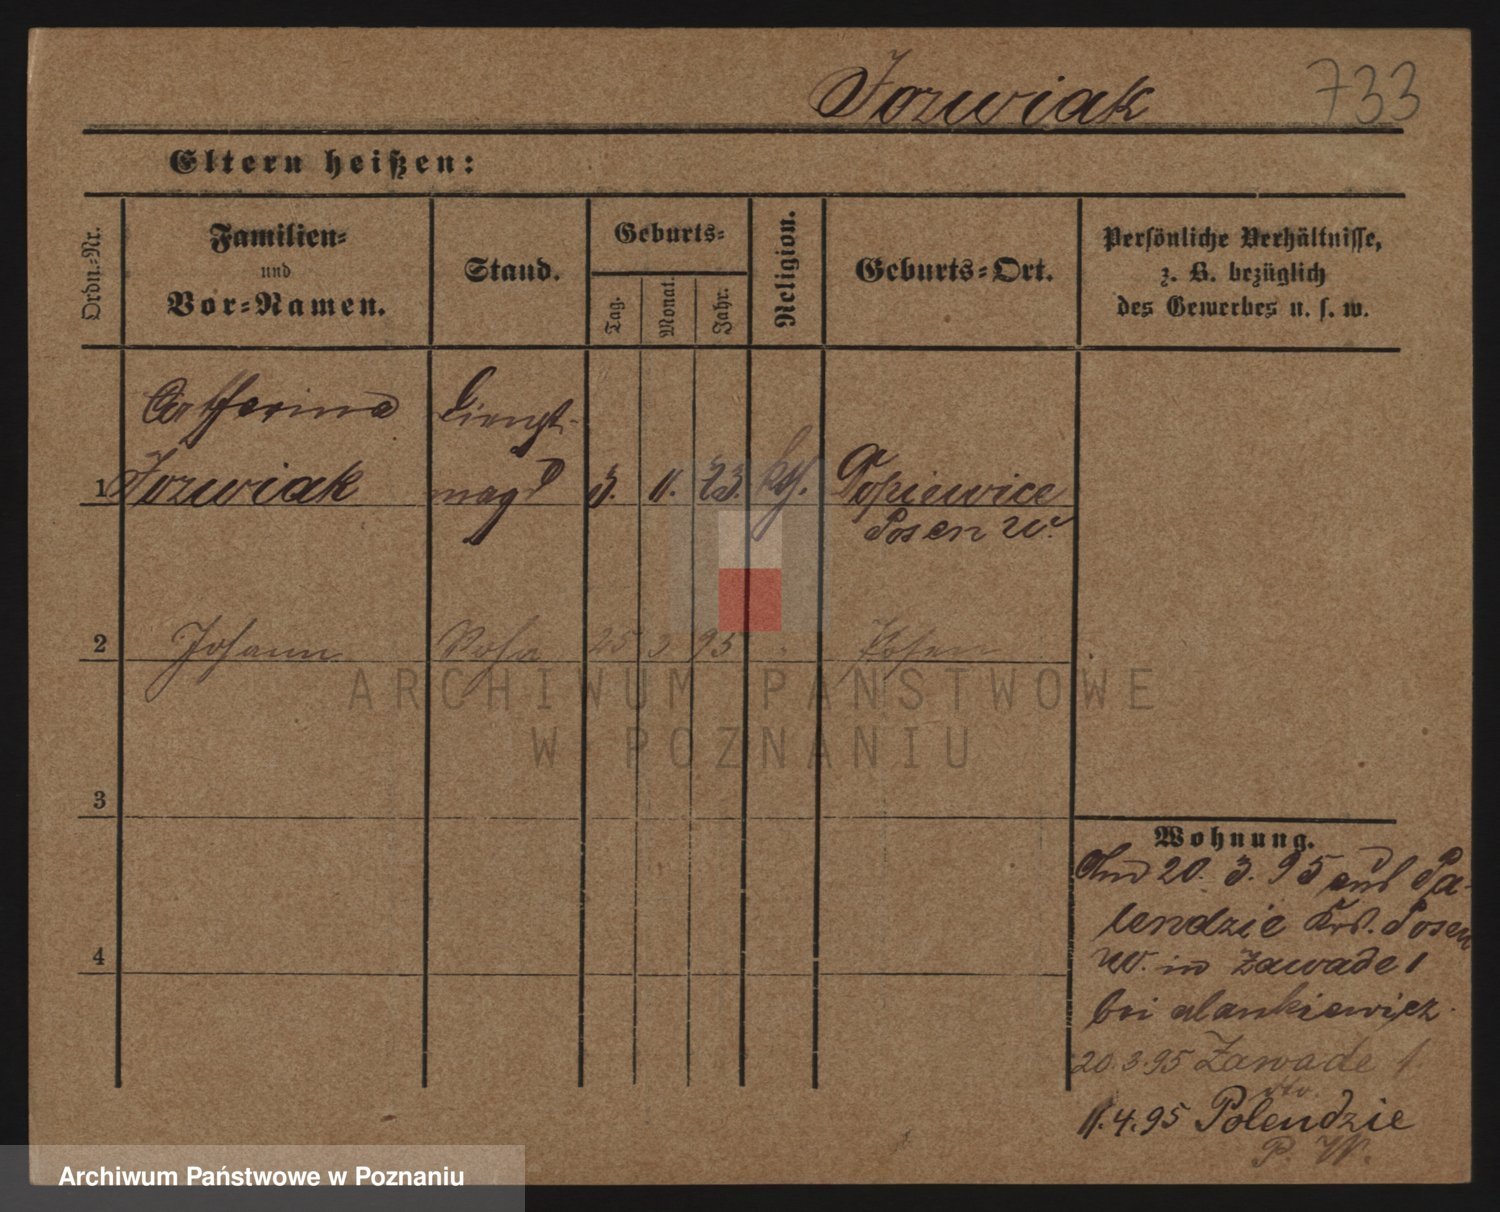 Jozwiak 733
Eltern heißen:
Ordn.-Nr.
Familien-
und
Vor-Namen.
Stand.
Geburts-
Tag.
Monat.
Jahr.
Religion.
Geburts-Ort.
Persönliche Verhältnisse,
z. B. bezüglich
des Gewerbes u. s. w.
Catharina Dienst-
1 Jozwiak magd 3. 11. 73. kth.
Posen W.
2 Johann Sohn 25 3 95 Posen
ARCHIWUM PAŃSTWOWE
W POZNANIU
3
Wohnung.
20. 3. 95 aus Pa-
lendzie Krs. Posen
W. in Zawade 1
bei
4
20.3.95 Zawade 1.
11.4.95 Polendzie
P. W.
Archiwum Państwowe w Poznaniu